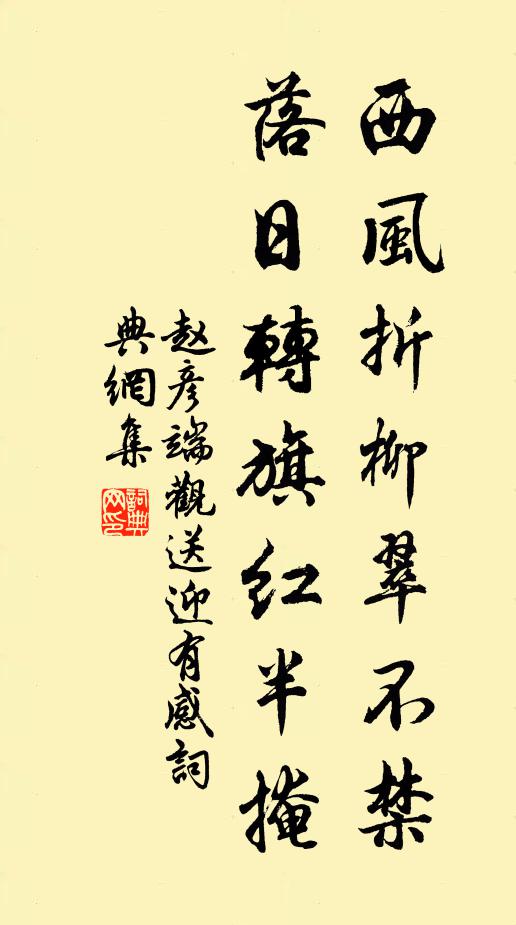 西風折柳翠不禁
落日轉旗紅半掩
赵彦端觀送迎有感詞
典網集
詞典網印